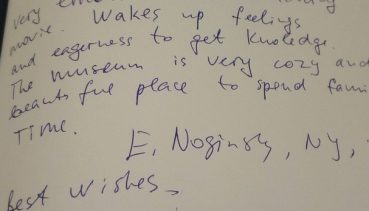 very
movie. Wakes up feelings
and eagerness to get knoledge.
The museum is very cozy and
beautiful place to spend fami
Time.
E, Noginsky, NY,
best wishes